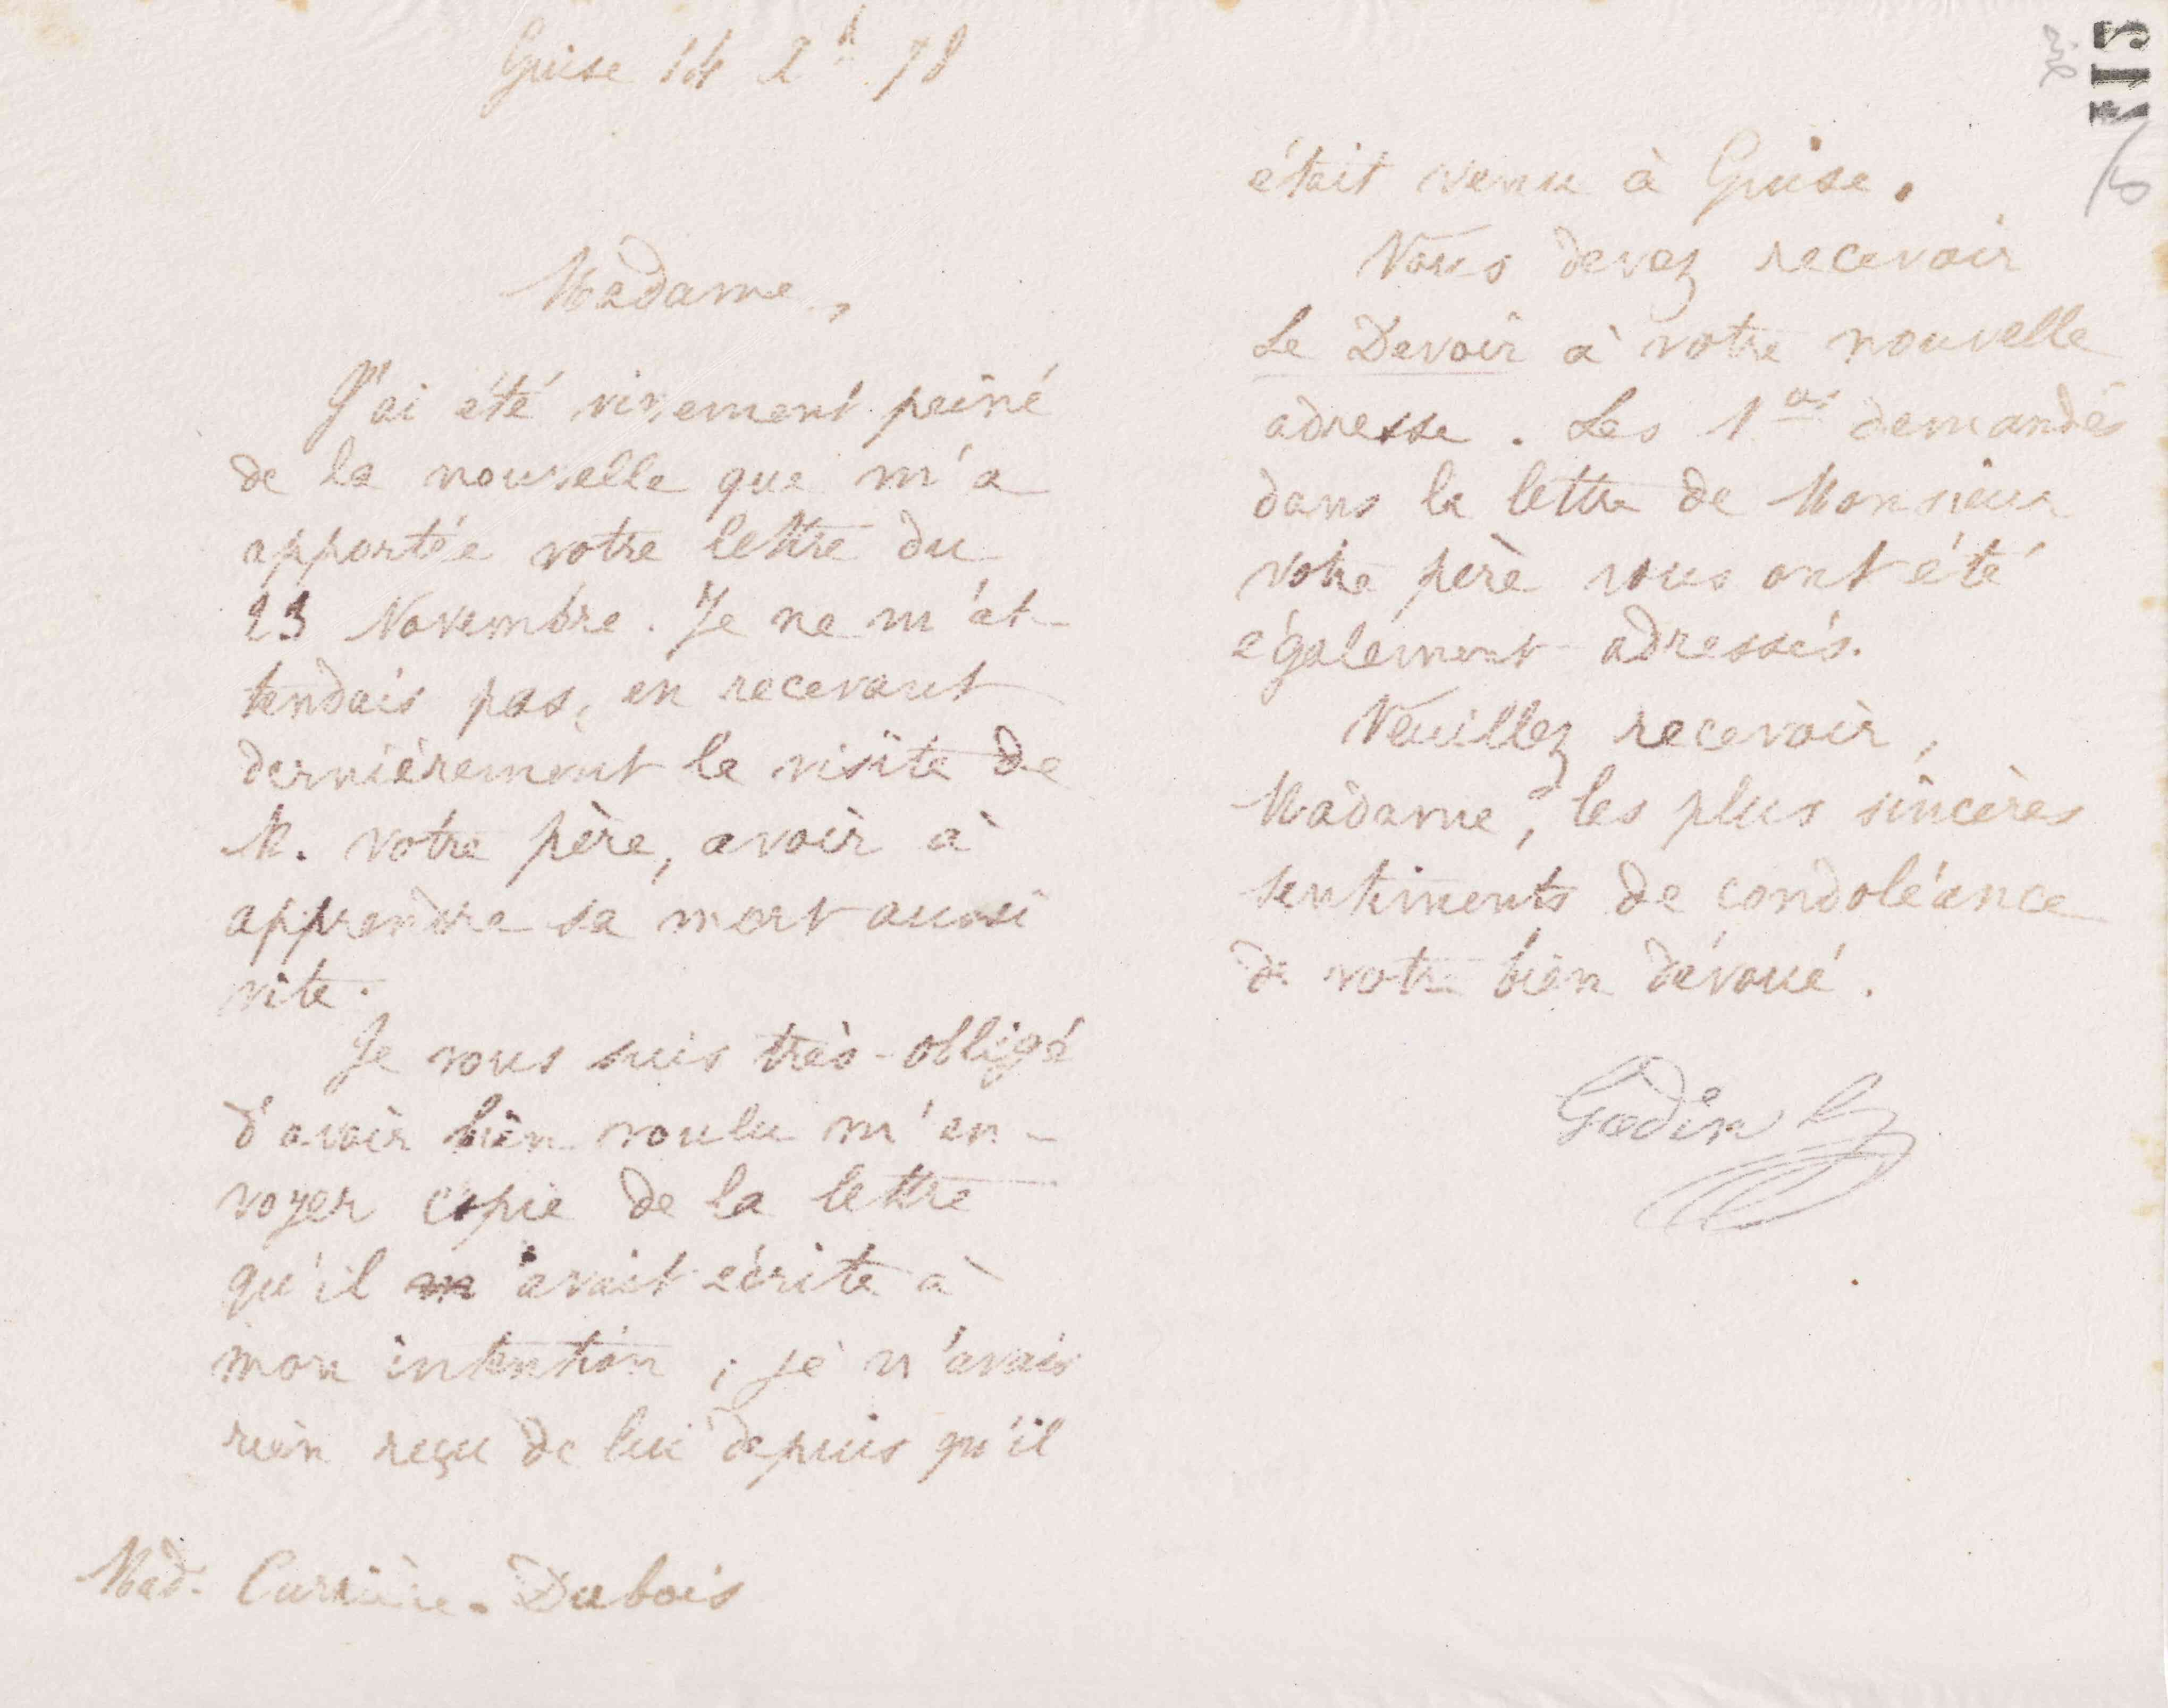 Guise 14 Xbre 78
Madame,
J'ai été vivement peiné
de la nouvelle que m'a
apportée votre lettre du
23 Novembre. Je ne m'at-
tendais pas, en recevant
dernièrement la visite de
M. votre père, avoir à
apprendre sa mort aussi
vite.
Je vous suis très-obligé
d'avoir bien voulu m'en-
voyer copie de la lettre
qu'il avait écrite à
mon intention ; je n'avais
rien reçu de lui depuis qu'il
Mad. Dubois
était venu à Guise.
Vous devez recevoir
Le Devoir à votre nouvelle
adresse. Les 1ers demandés
dans la lettre de Monsieur
votre père vous ont été
également adressés.
Veuillez recevoir,
Madame, les plus sincères
sentiments de condoléance
de votre bien dévoué.
Godin